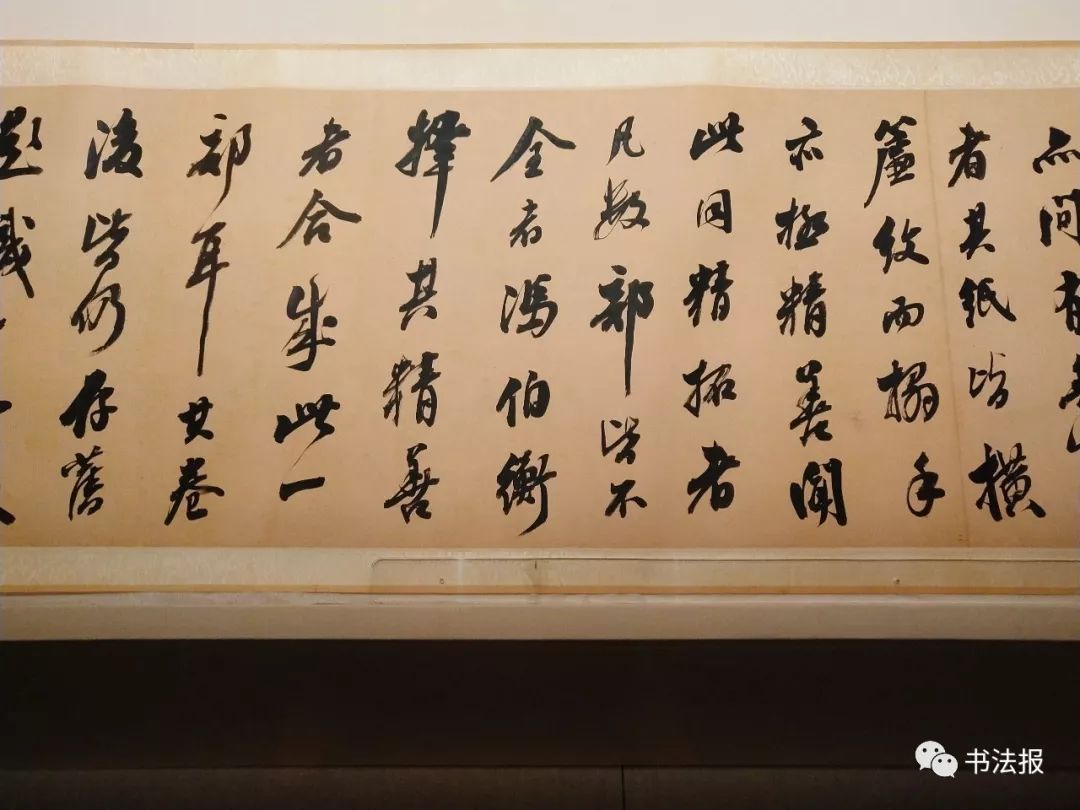 間有
者其紙皆橫
簾紋而搨手
亦極精善聞
此同精拓者
凡數部皆不
全者馮伯衡
擇其精善
者合成此一
部耳其卷
後皆仍存舊
书法报